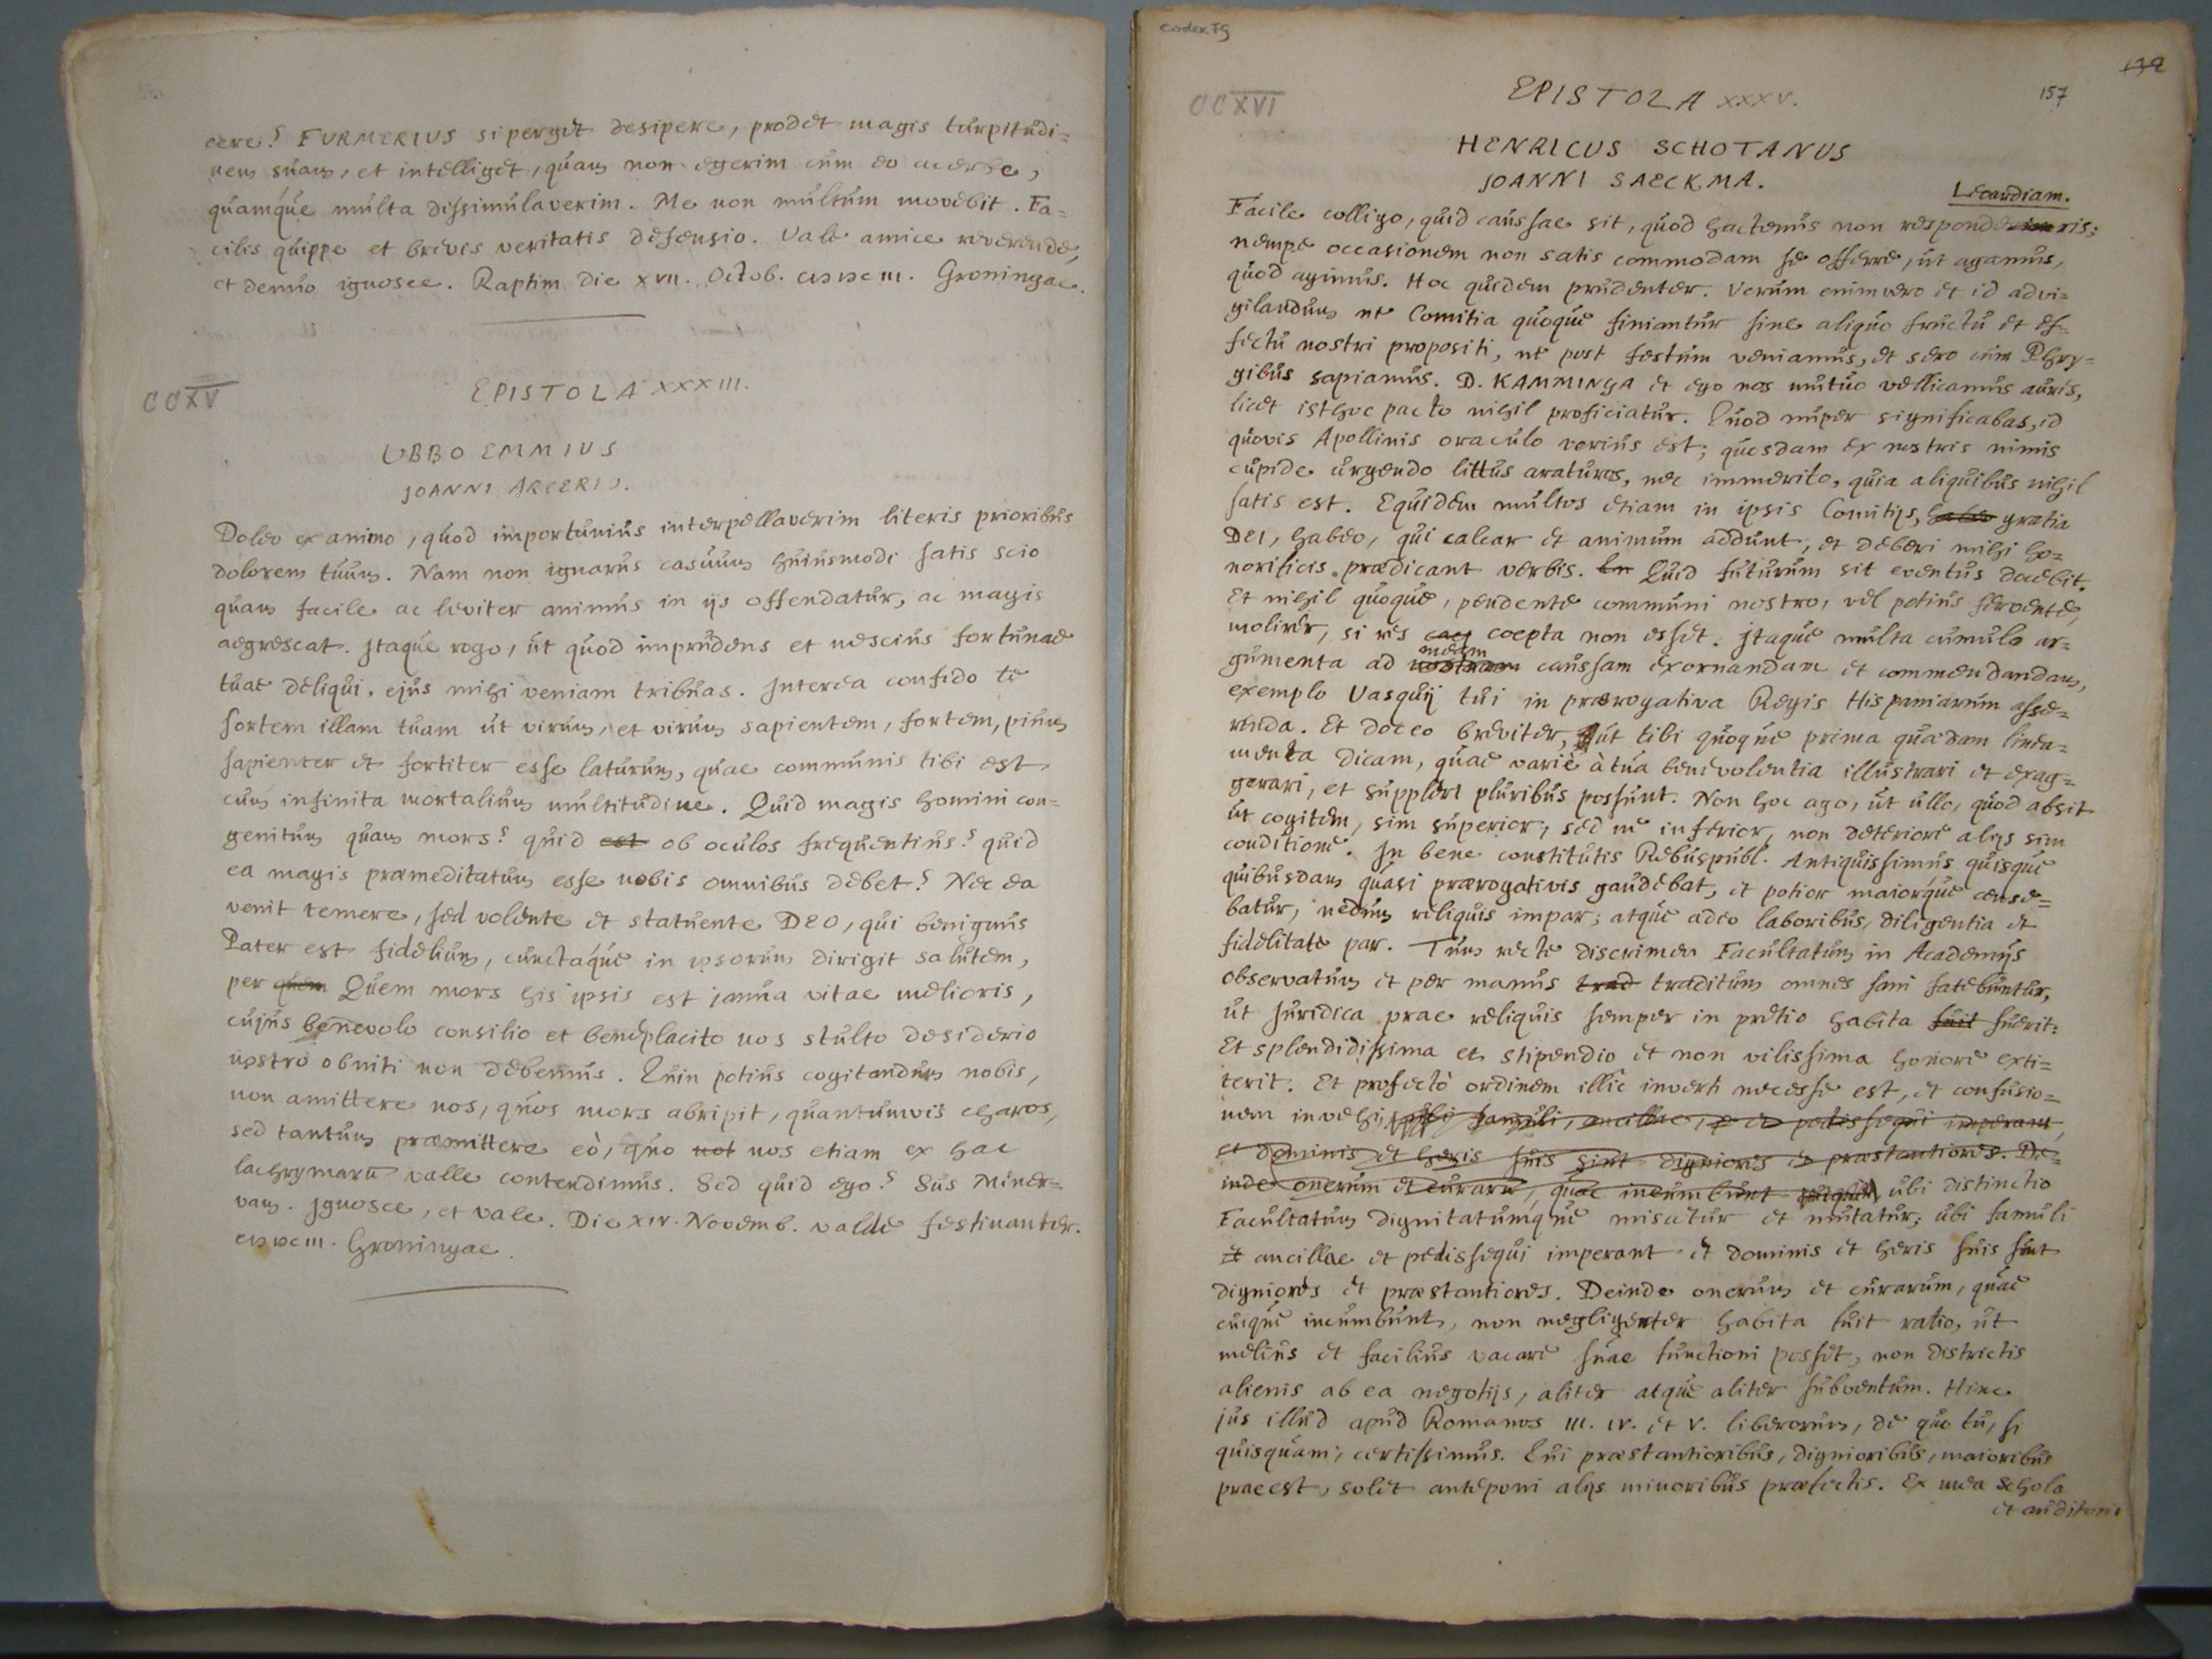 cere? FURMERIUS si perget desipere, prodet magis turpitudi=
nem suam, et intelliget, quam non egerim cum eo acerbe,
quamque multa dissimulaverim. Me non multum movebit. Fa=
cilis quippe et brevis veritatis defensio. Vale amice reverende,
et denuo ignosce. Raptim die XVII. Octob. CIƆIƆCIII. Groningae.
CCXV
EPISTOLA XXXIII.
UBBO EMMIUS
JOANNI ARCERIO.
Doleo ex animo, quod importunius interpellaverim literis prioribus
dolorem tuum. Nam non ignarus casuum huiusmodi satis scio
quam facile ac leviter animus in ijs offendatur, ac magis
aegrescat. Itaque rogo, ut quod imprudens et nescius fortunae
tuae deliqui, ejus mihi veniam tribuas. Interea confido te
sortem illam tuam ut virum, et virum sapientem, fortem, pium
sapienter et fortiter esse laturum, quae communis tibi est
cum infinita mortalium multitudine. Quid magis homini con=
genitum quam mors? quid est ob oculos frequentius? quid
ea magis praemeditatum esse nobis omnibus debet? Nec ea
venit temere, sed volente et statuente DEO, qui benignus
Pater est fidelium, cunctaque in ipsorum dirigit salutem,
per quem Quem mors his ipsis est janua vitae melioris,
cujus benevolo consilio et beneplacito nos stulto desiderio
nostro obniti non debemus. Quin potius cogitandum nobis,
non amittere nos, quos mors abripit, quantumvis charos,
sed tantum praemittere eò, quo not nos etiam ex hac
lachrymarū valle contendimus. Sed quid ego? Sus Miner=
vam. Ignosce, et vale. Die XIV. Novemb. valde festinanter.
CIƆIƆCIII. Groningae.
codex FG
132
157
CCXVI
EPISTOLA XXXV.
HENRICUS SCHOTANUS
JOANNI SAECKMA.
Leoardiam.
Facile colligo, quid caussae sit, quod hactenus non responderis;
nempe occasionem non satis commodam se offerre, ut agamus,
quod agimus. Hoc quidem prudenter. Verum enimvero et id advi=
gilandum ne Comitia quoque finiantur sine aliquo fructu et ef=
fectu nostri propositi, ne post festum veniamus, et sero cum Phry=
gibus sapiamus. D. KAMMINGA et ego nos mutuo vellicamus aures,
licet isthoc pacto nihil proficiatur. Quod nuper significabas, id
quovis Apollinis oraculo verius est; quosdam ex nostris nimis
cupide urgendo littus araturos, nec immerito, quia aliquibus nihil
satis est. Equidem multos etiam in ipsis Comitijs, habeo gratia
DEI, habeo, qui calcar et animum addunt, et deberi mihi ho=
norificis praedicant verbis. En Quid futurum sit eventus docebit.
Et nihil quoque, pendente communi nostro, vel potius fervente,
molirer, si res caep coepta non esset. Itaque multa cumulo ar=
meam
gumenta ad nostram caussam exornandam et commendandam,
exemplo Vasquij tui in praerogativa Regis Hispaniarum asse=
renda. Et doceo breviter, ut tibi quoque prima quaedam linea=
menta dicam, quae variè à tua benevolentia illustrari et exag=
gerari, et suppleri pluribus possunt. Non hoc ago, ut ullo, quod absit
ut cogitem, sim superior; sed ne inferior, non deteriore alijs sim
conditione. In bene constitutis Rebuspubl. Antiquissimus quisque
quibusdam quasi praerogativis gaudebat, et potior maiorque cense=
batur, nedum reliquis impar; atque adeo laboribus, diligentia et
fidelitate par. Tum recte discrimen Facultatum in Academijs
observatum et per manus trad traditum omnes sani fatebuntur,
ut Juridica prae reliquis semper in pretio habita fuit fuerit:
Et splendidissima et stipendio et non vilissima honore exti=
terit. Et profectò ordinem illic inverti necesse est, et confusio=
nem invehi, ubi famuli, ancillae, et pedissequi imperant,
et dominis et heris suis sint digniores et praestantiores. De=
inde onerum et curarū, quae incumbunt cuique ubi distinctio
Facultatum dignitatumque miscetur et mutatur; ubi famuli
et ancillae et pedissequi imperant et dominis et heris suis sint
digniores et praestantiores. Deinde onerum et curarum, quae
cuique incumbunt, non negligenter habita fuit ratio, ut
melius et facilius vacare suae functioni posset, non districtis
alienis ab ea negotijs, aliter atque aliter subventum. Hinc
jus illud apud Romanos III. IV. et V. liberorum, de quo tu, si
quisquam, certissimus. Qui praestantioribus, dignioribus, maioribus
praeest, solet anteponi alijs minoribus praefectis. Ex mea schola
et auditorio